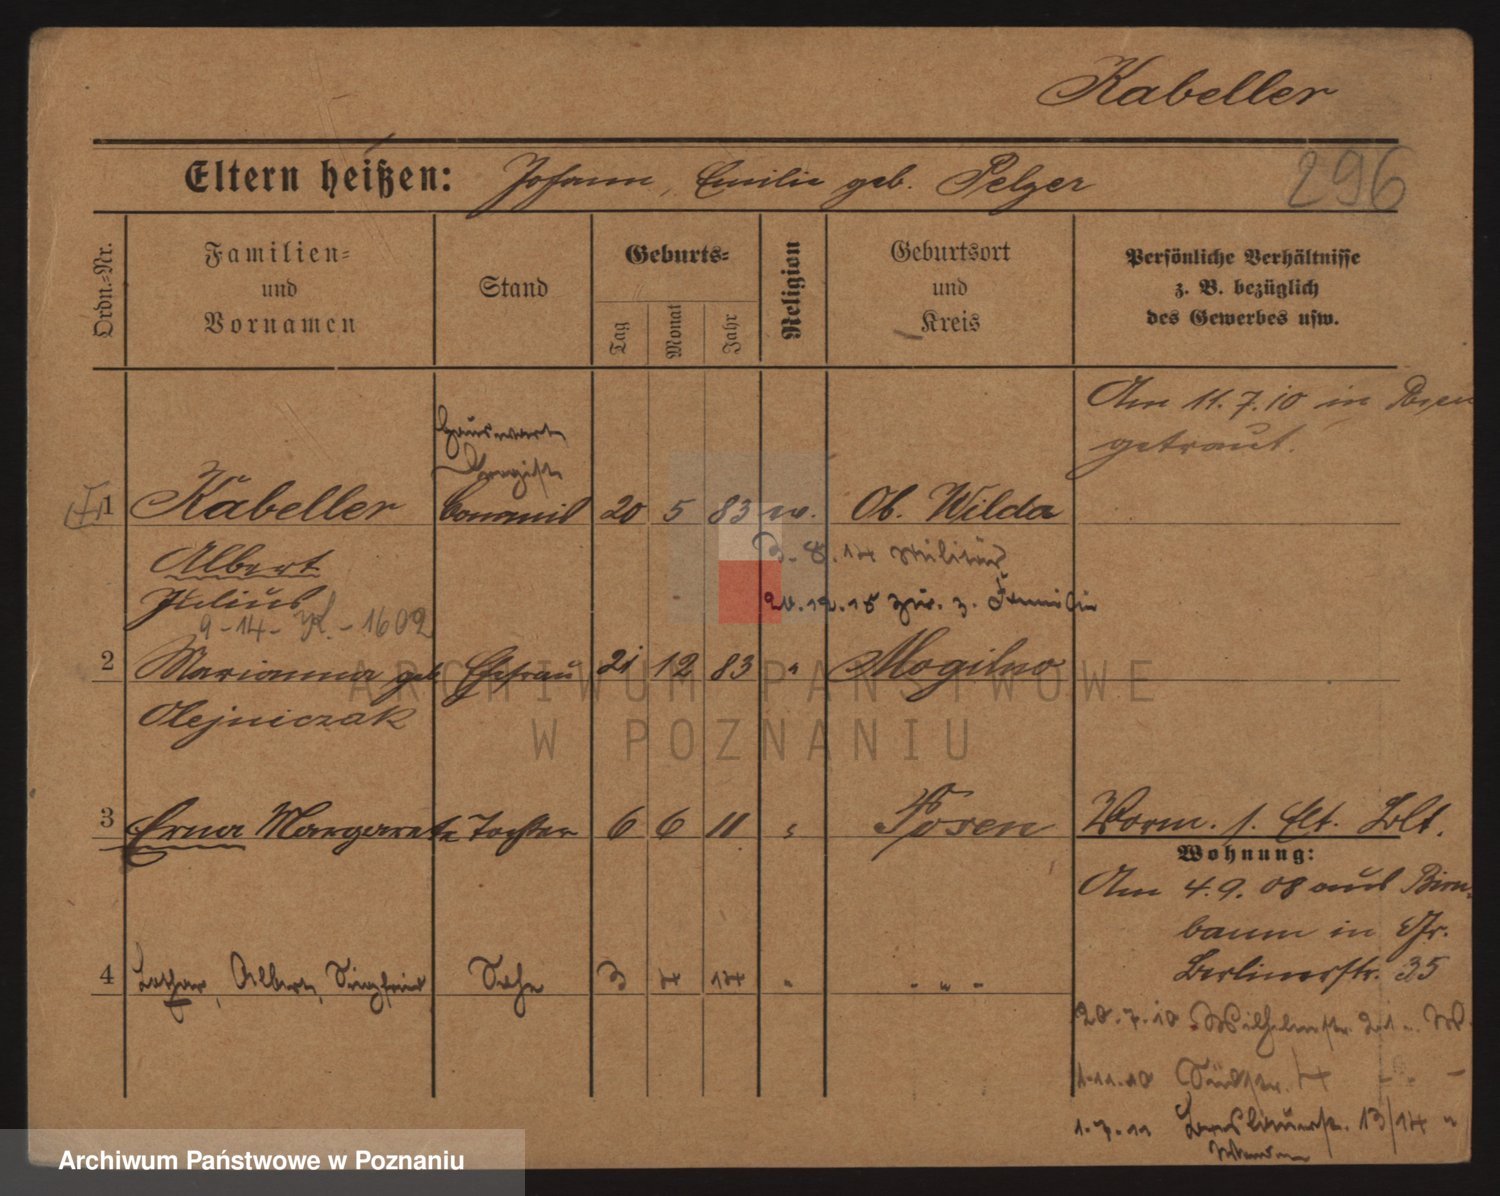 Kabeller
Eltern heißen: Johann, Emilie geb. Pelzer
296
Ordn.=Nr.
Familien=
und
Vornamen
Stand
Geburts=
Tag
Monat
Jahr
Religion
Geburtsort
und
Kreis
Persönliche Verhältnisse
z. B. bezüglich
des Gewerbes usw.
Am 11.7.10 in Posen
getraut.
Hauswart
Drogist
1 Kabeller 20 5 83 Ob. Wilda
Albert
Julius
3.8.14 Militär
20.12.15 zur. z. Familie
9-14- -1602
2 Marianna geb Ehefrau 21 12 83 " Mogilno
Olejniczak
3 Erna Margarete Tochter 6 6 11 " Posen
Vorm. s. Elt. Blt.
Wohnung:
Am 4.9.08 aus Birn-
baum in Gr.
Berlinerstr. 35
4 Lothar, Albert, Siegfried Sohn 3 4 14 " - " -
20.7.10 Wilhelmstr.
1.11.10 Südstr.
1.7.11 13/14 "
ARCHIWUM PAŃSTWOWE
W POZNANIU
Archiwum Państwowe w Poznaniu